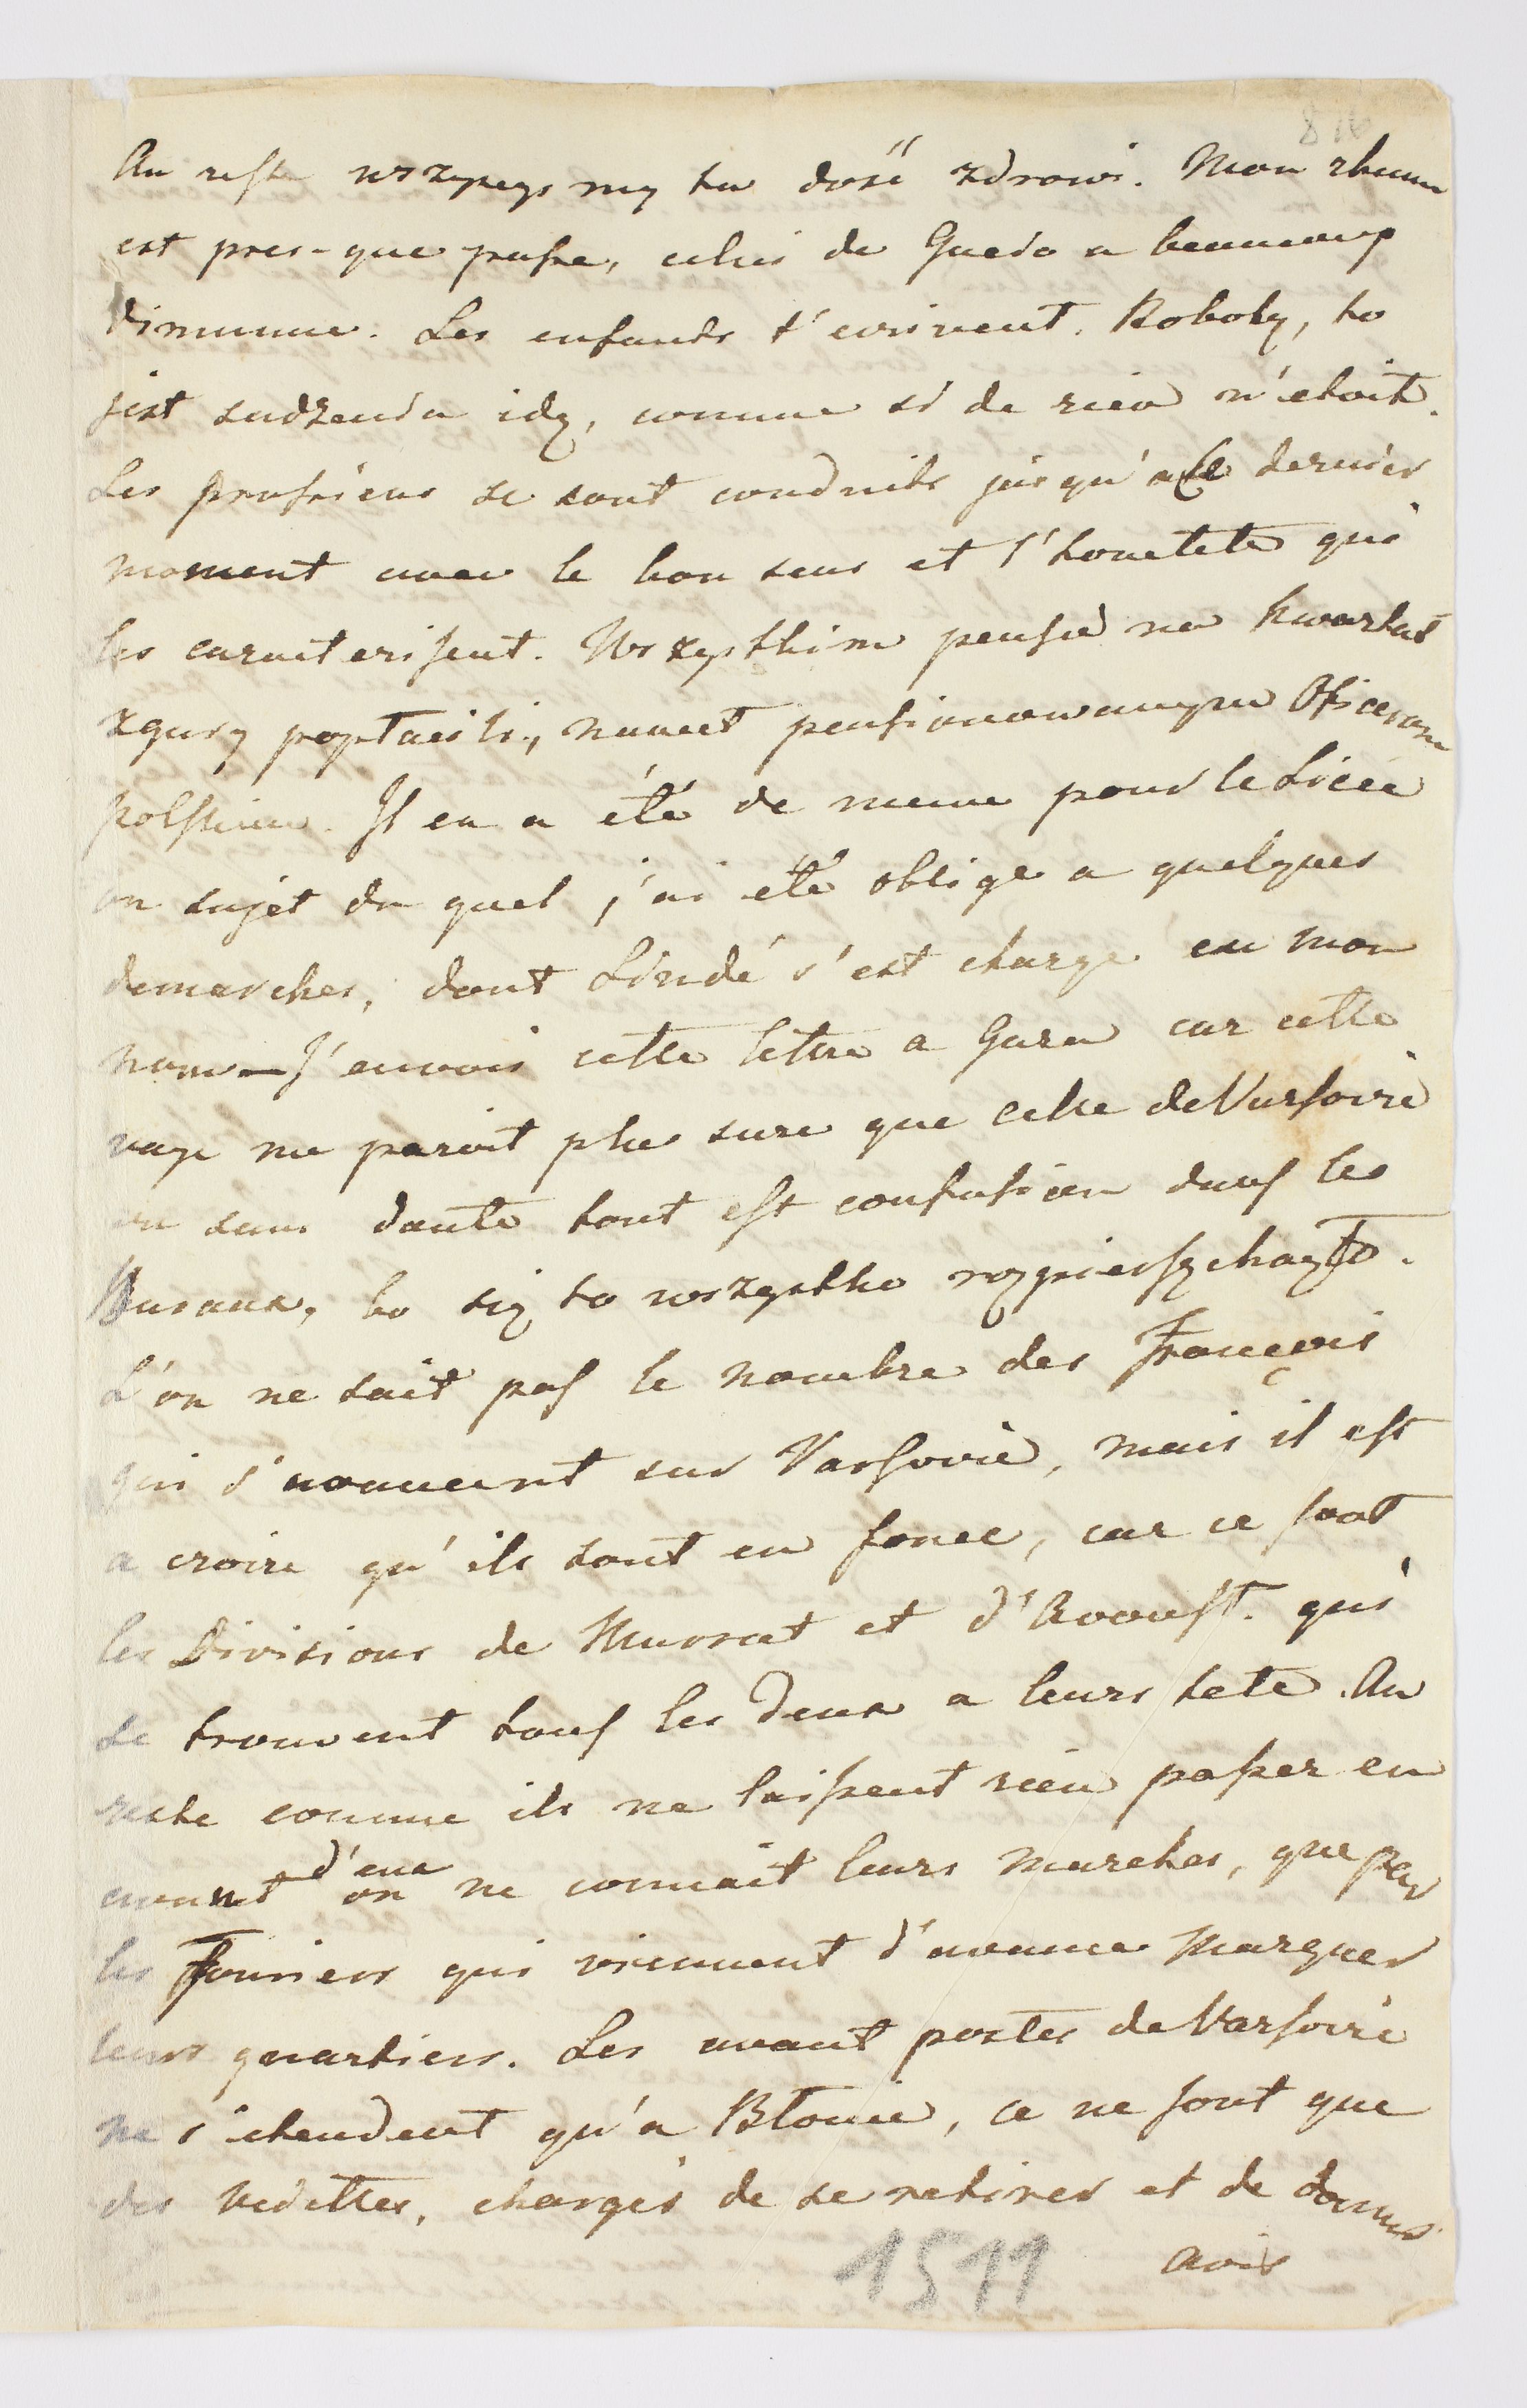 Au reste wszyscys my tu dosić zdrowi. Mon rhume
est pres-que passe, celui de Guedo a beaucoup
diminue. Les enfants t'ecrivent. Roboty, to
jest sadzenia idą, comme si de rien n'etoit.
Les prussiens se sont conduits jusqu'a le dernier
moment avec le bon sens et l'honetete qui
les caracterisent. Wszystkim pensie na kwartał
zgury popłacili, nawet pensionowanym Oficerom
polskim. Il en a été de meme pour le Licée
au sujet du quel j'ai été oblige a quelques
demarches, dont Lindé s'est charge en mon
nom — J'envois cette lettre a Gura car cette
voye me paroit plus sure que celle de Varsovie
ou sans doute tout est confusion dans les
Bureaux, bo się to wszystko rozpierzchayło.
L'on ne sait pas le nombre des François
qui s'avancent sur Varsovie, mais il est
a croire qu'ils sont en force, car ce sont
les Divisions de Murrat et d'Avoust. qui
se trouvent tous les deux a leurs tete. Au
reste comme ils ne laissent rien passer en
avant d'eux on ne connait leurs marches, que par
les Fouriers qui viennent d'avance marquer
leurs quartiers. Les avant postes de Varsovie
ne s'etendent qu'a Błonie, ce ne sont que
des vedettes, chargés de se retirer et de donner
avis
1511